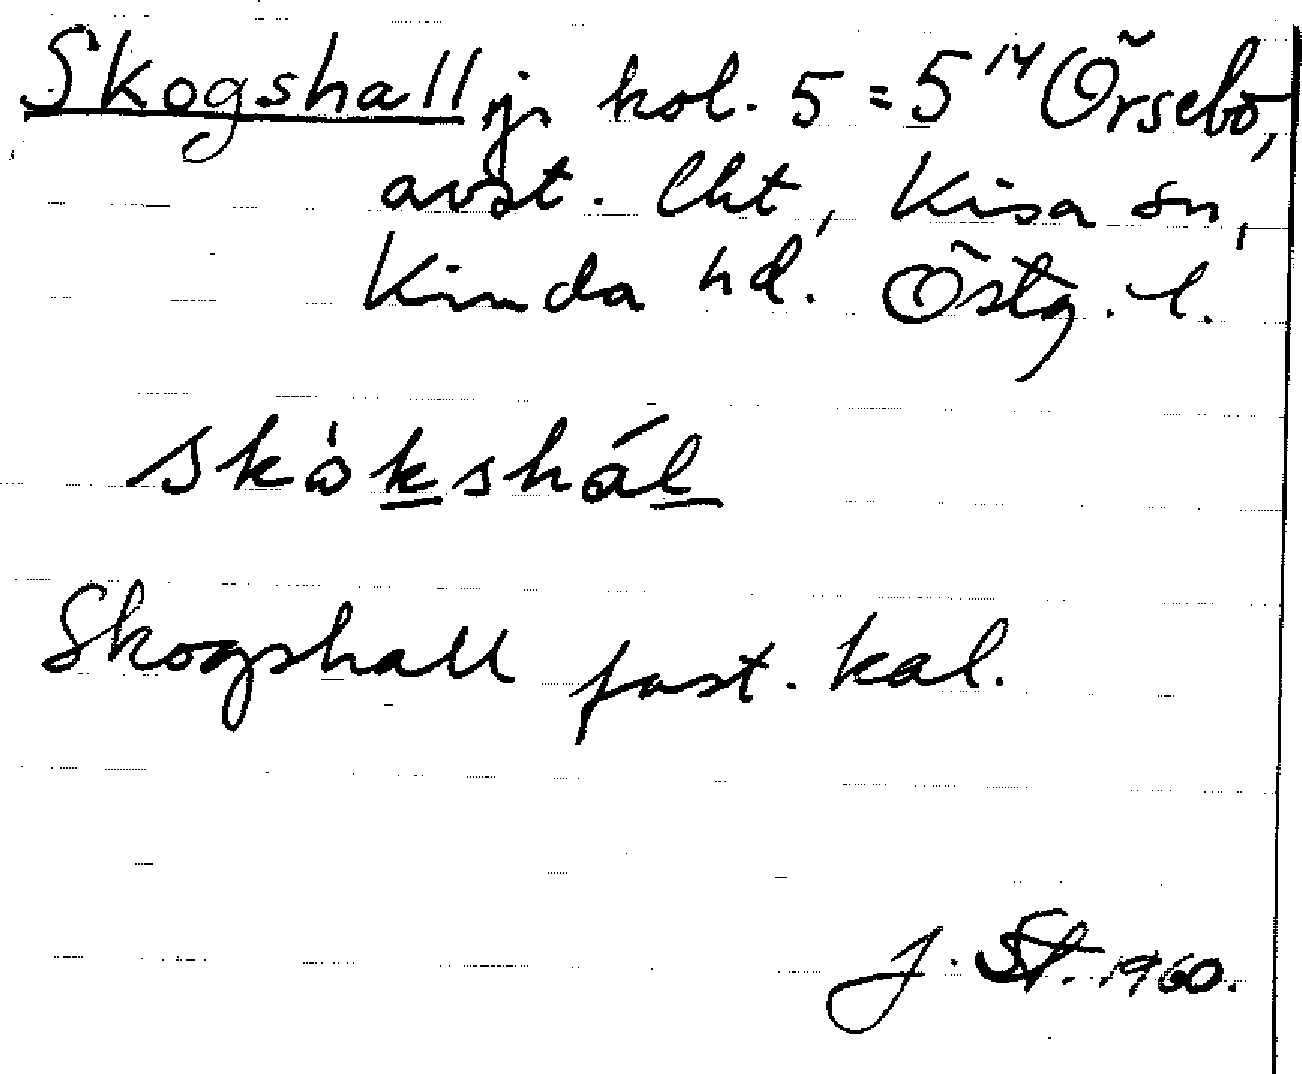 Skogshall jr kol. 5 = 5¹⁴ Örsebo,
avst. lht, Kisa sn,
Kinda hd. Östg. l.
skòkshál
Skogshall fast. kal.
J. St. 1960.